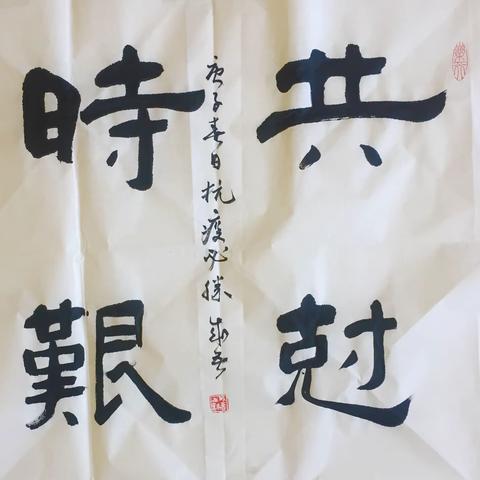 共尅
時艱
庚子春日抗疫必勝